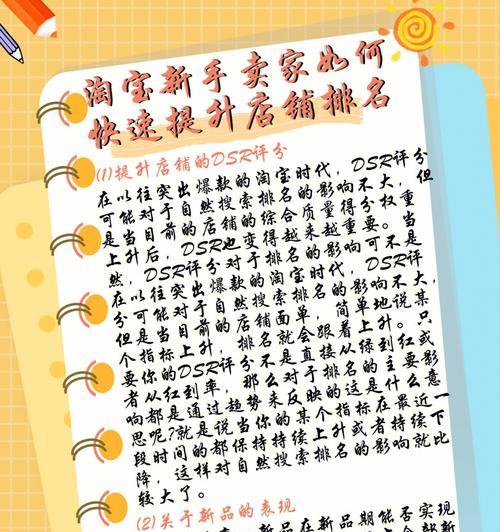 淘宝新手卖家如何
快速提升店铺排名
(1)提升店铺的DSR评分
在以往突出爆款的淘宝时代，DSR评分
可能对于自然搜索排名的影响不大，但
是当目前的店铺的综合质量得分权重
上升后，DSR也变得越来越重要。当
然，DSR评分对于排名的影响可不是
在以往突出爆款的淘宝时代，DSR评
分可能对于自然搜索排名的影响不大，
但是当目前的店铺面单，简单地说某
个指标上升，排名就会跟着上升。只
要你的DSR评分不是直接从绿到红或
者从红到率，那么对于排名的主要影
响都是通过趋势来反映的这是什么意
思呢?就是说当你的某个指标在最近一
段时间的都保持持续上升或者持续下
降，这样对自然搜索排名的影响就比
较大了。
(2)关于新品的表现